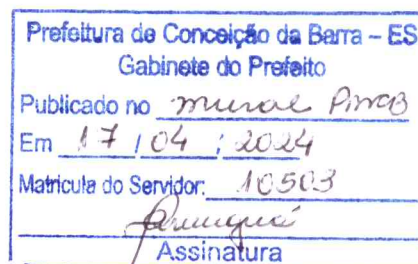 Prefeitura de Conceição da Barra – ES
Gabinete do Prefeito
Publicado no mural PMCB
Em 17 / 04 / 2024
Matricula do Servidor: 10503
Assinatura